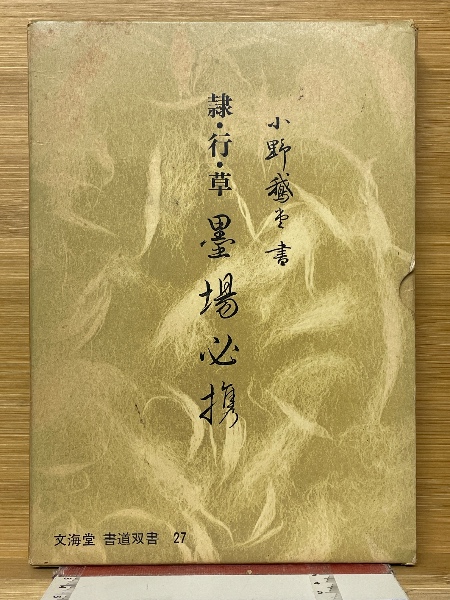 小野鵞堂書
隷・行・草 墨場必携
文海堂 書道双書 27